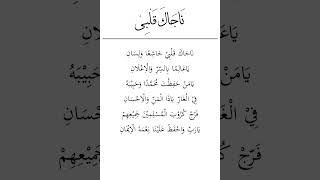 نَاجَاكَ قَلْبِيْ
نَاجَاكَ قَلْبِيْ خَاشِعًا وَلِسَانِ
يَاعَالِمًا بِالسِّرِّ وَالْاِعْلَانِ
يَامَنْ حَفِظْتَ مُحَمَّدًا وَحَبِيْبَهُ
فِيْ الْغَارِ يَاذَا الْمَنِّ وَالْاِحْسَانِ
فَرِّجْ كُرُوْبَ الْمُسْلِمِيْنَ جَمِيْعِهِمْ
يَارَبِّ وَاحْفَظْ عَلَيْنَا نِعْمَةَ الْاِيْمَانِ
فَرِّجْ
جَمِيْعِهِمْ